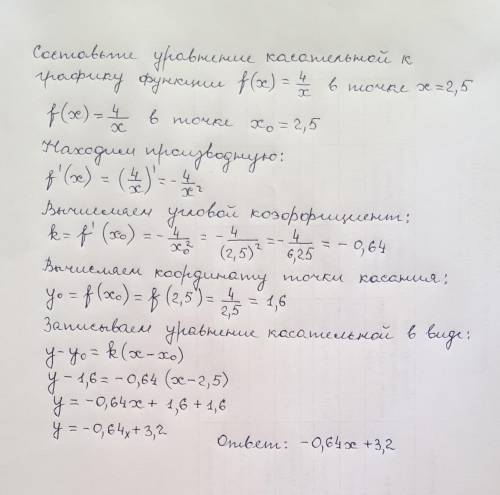 Составьте уравнение касательной к
графику функции f(x) = 4/x в точке x=2,5
f(x) = 4/x в точке x₀ = 2,5
Находим производную:
f'(x) = (4/x)' = -4/x²
Вычисляем угловой коэффициент:
k = f'(x₀) = -4/x₀² = -4/(2,5)² = -4/6,25 = -0,64
Вычисляем координату точки касания:
y₀ = f(x₀) = f(2,5) = 4/2,5 = 1,6
Записываем уравнение касательной в виде:
y-y₀ = k(x-x₀)
y - 1,6 = -0,64 (x-2,5)
y = -0,64x + 1,6 + 1,6
y = -0,64x + 3,2
Ответ: -0,64x + 3,2